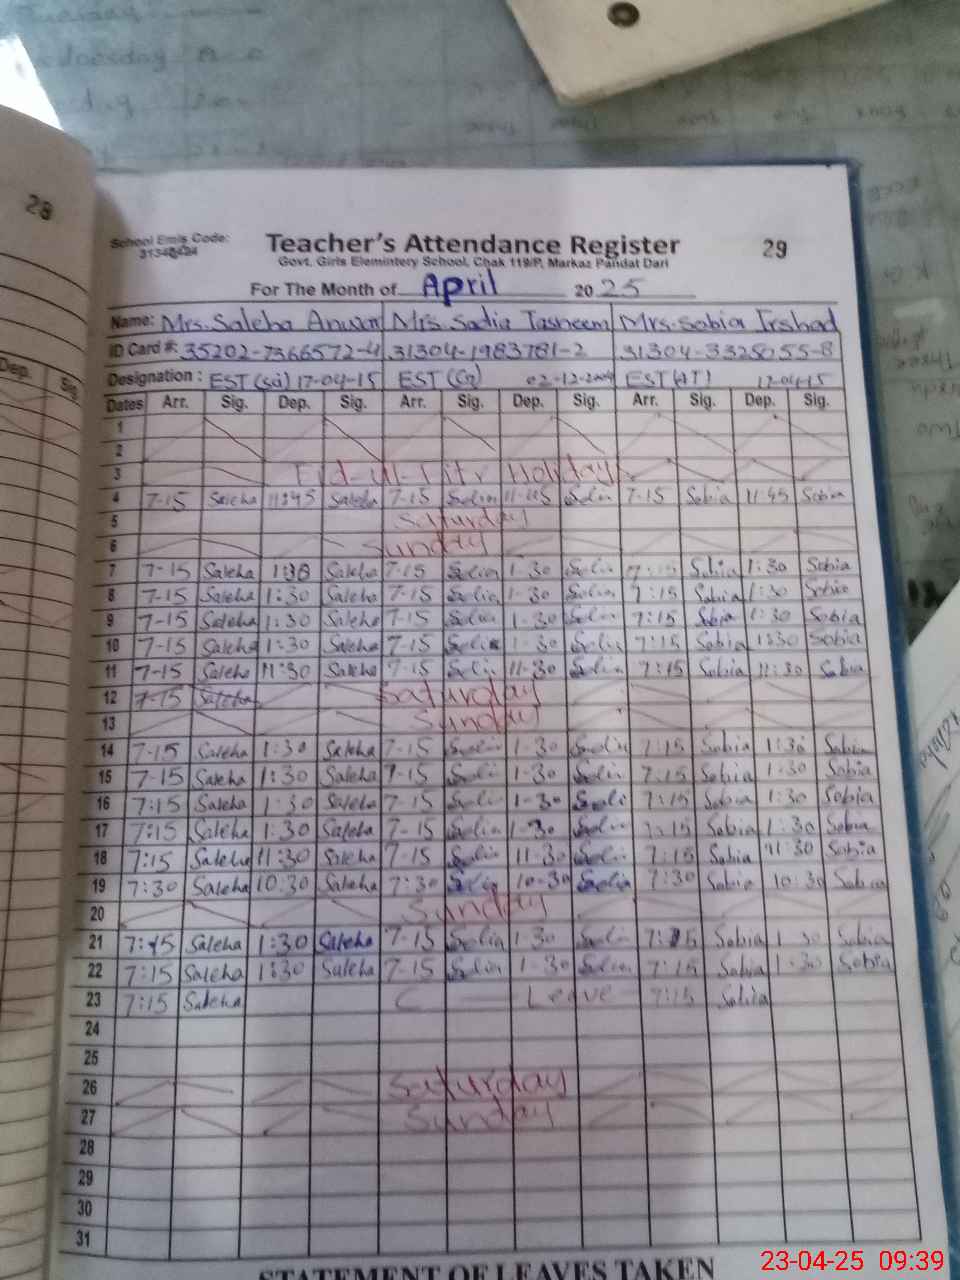 28
School Emis Code:
Teacher's Attendance Register
29
Govt. Girls Elementery School, Chak 119/P, Markaz Pandat Dari
For The Month of April 2025
Name: Mrs. Saleha Anwar Mrs. Sadia Tasneem Mrs. Sobia Irshad
ID Card #: 35202-7366572-4 31304-1983781-2 31304-3325055-8
Designation: EST (Sci) 17-04-15 EST 02-12-2009 EST (AT) 17-04-15
Dates Arr. Sig. Dep. Sig. Arr. Sig. Dep. Sig. Arr. Sig. Dep. Sig.
1
2
3 Eid-ul-Fitr Holiday
4 7-15 Saleha 11:45 Saleha 7-15 11-45 7-15 Sobia 11:45 Sobia
5 Saturday
6 Sunday
7 7-15 Saleha Saleha 7-15 1-30 7:15 Sobia 1:30 Sobia
8 7-15 Saleha 1:30 Saleha 7-15 1-30 7:15 Sobia 1:30 Sobia
9 7-15 Saleha 1:30 Saleha 7-15 1-30 7:15 Sobia 1:30 Sobia
10 7-15 Saleha 1:30 Saleha 7-15 1-30 7:15 Sobia 1:30 Sobia
11 7-15 Saleha 11:30 Saleha 7-15 11-30 7:15 Sobia 11:30 Sobia
12 7-15 Saleha Saturday
13 Sunday
14 7-15 Saleha 1:30 Saleha 7-15 1-30 7:15 Sobia 1:30 Sobia
15 7-15 Saleha 1:30 Saleha 7-15 1-30 7:15 Sobia 1:30 Sobia
16 7:15 Saleha 1:30 Saleha 7-15 1-30 7:15 Sobia 1:30 Sobia
17 7:15 Saleha 1:30 Saleha 7-15 1-30 7:15 Sobia 1:30 Sobia
18 7:15 Saleha 11:30 Saleha 7-15 11-30 7:15 Sobia 11:30 Sobia
19 7:30 Saleha 10:30 Saleha 7:30 10-30 7:30 Sobia 10:30 Sobia
20 Sunday
21 7:15 Saleha 1:30 Saleha 7-15 1-30 7:15 Sobia 1-30 Sobia
22 7:15 Saleha 1:30 Saleha 7-15 1-30 7:15 Sobia 1-30 Sobia
23 7:15 Saleha C Leave 7:15 Sobia
24
25
26 Saturday
27 Sunday
28
29
30
31
STATEMENT OF LEAVES TAKEN
23-04-25 09:39